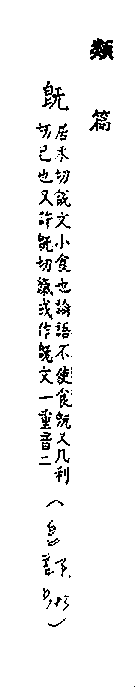 類篇
旣
居未切說文小食也論語不使食旣又几利
切已也又許旣切餼或作旣文一重音二